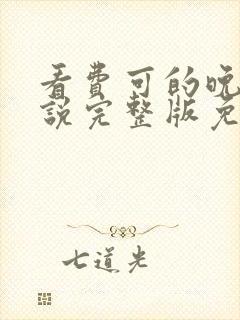 看费可的晚
說完整版免
七道光